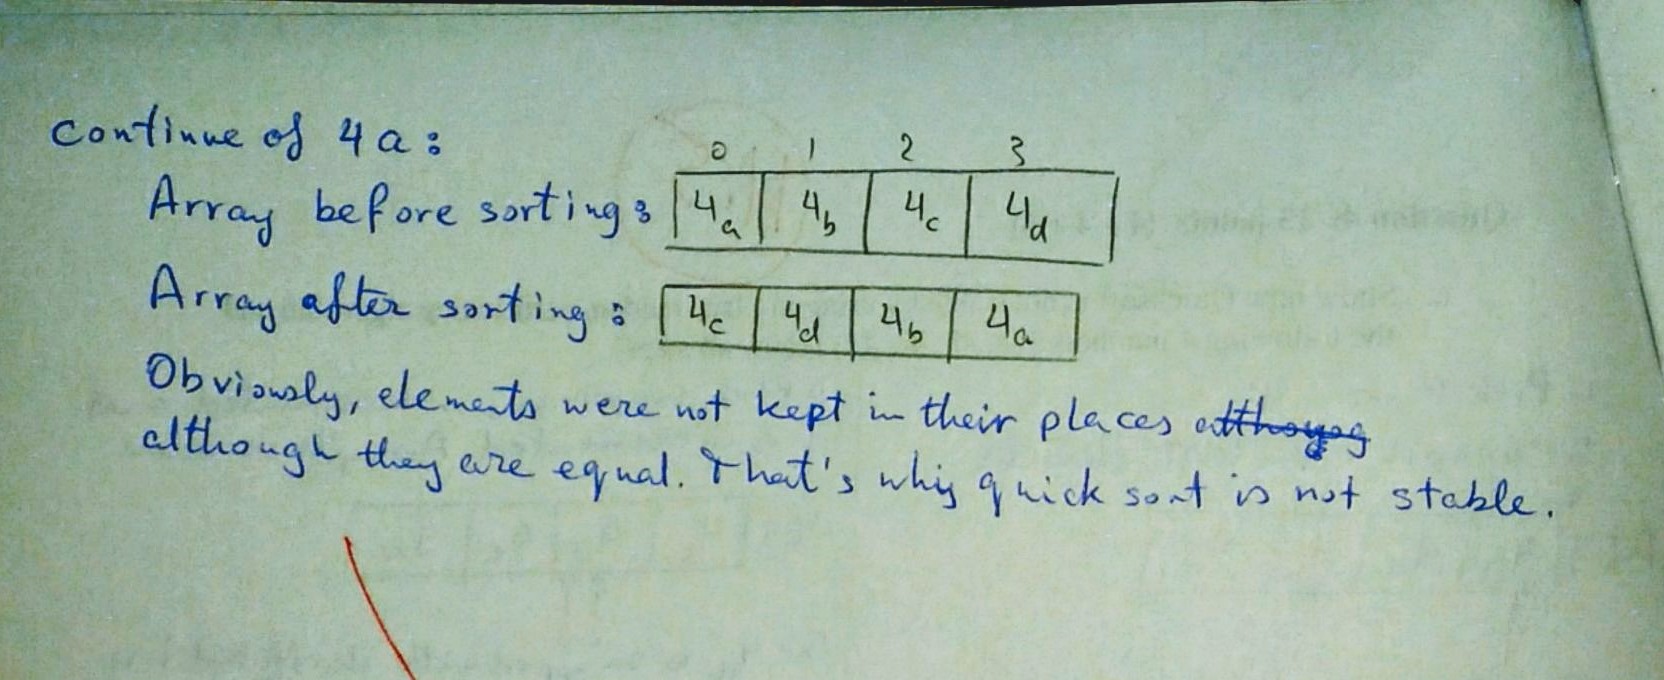 continue of 4a:
0 1 2 3
Array before sorting: 4a 4b 4c 4d
Array after sorting: 4c 4d 4b 4a
Obviously, elements were not kept in their places
although they are equal. That's why quick sort is not stable.